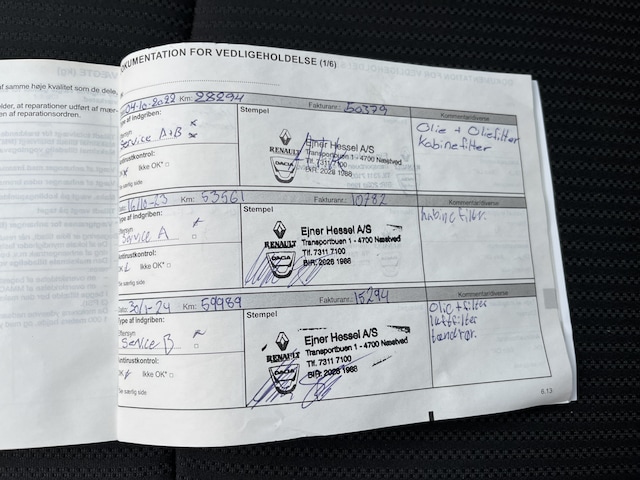 af samme høje kvalitet som de dele,
older, at reparationer udført af mær-
en af reparationsordren.
DOKUMENTATION FOR VEDLIGEHOLDELSE (1/6)
04-10-2022 Km: 28294 Fakturanr.: 50379 Kommentar/diverse:
Stempel
Service A+B
Antirustkontrol:
OK Ikke OK*
*Se særlig side
RENAULT
DACIA
Ejner Hessel A/S
Transportbuen 1 - 4700 Næstved
Tlf. 7311 7100
BIR. 2028 1988
Olie + Oliefilter
Kabinefilter
16/10-23 Km: 53561 Fakturanr.: 10782 Kommentar/diverse:
Type af indgriben:
Stempel
Eftersyn
Service A
Antirustkontrol:
OK Ikke OK*
*Se særlig side
RENAULT
DACIA
Ejner Hessel A/S
Transportbuen 1 - 4700 Næstved
Tlf. 7311 7100
BIR. 2028 1988
Kabinefilter.
Dato: 30/1-24 Km: 59989 Fakturanr.: 15294 Kommentar/diverse:
Type af indgriben:
Stempel
Eftersyn
Service B
Antirustkontrol:
OK Ikke OK*
*Se særlig side
RENAULT
DACIA
Ejner Hessel A/S
Transportbuen 1 - 4700 Næstved
Tlf. 7311 7100
BIR. 2028 1988
Olie+filter
luftfilter
tændrør.
6.13